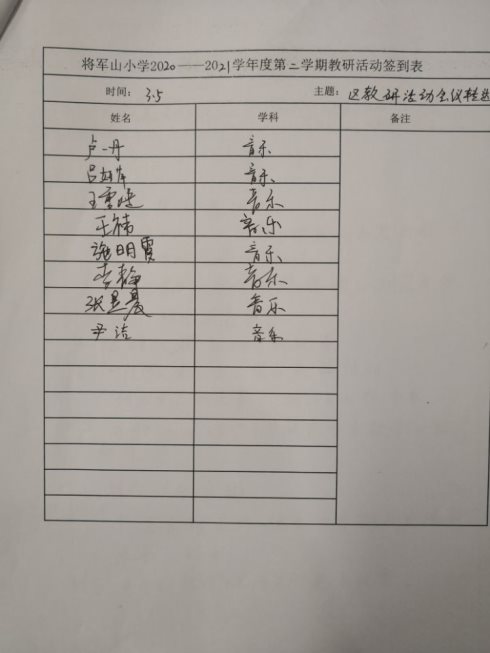 将军山小学2020——2021学年度第二学期教研活动签到表
时间： 3.5 主题： 区教研活动会议转达
姓名 学科 备注
卢丹 音乐
音乐
王雪婷 音乐
王祎 音乐
施明霞 音乐
李静 音乐
张昱晨 音乐
尹洁 音乐